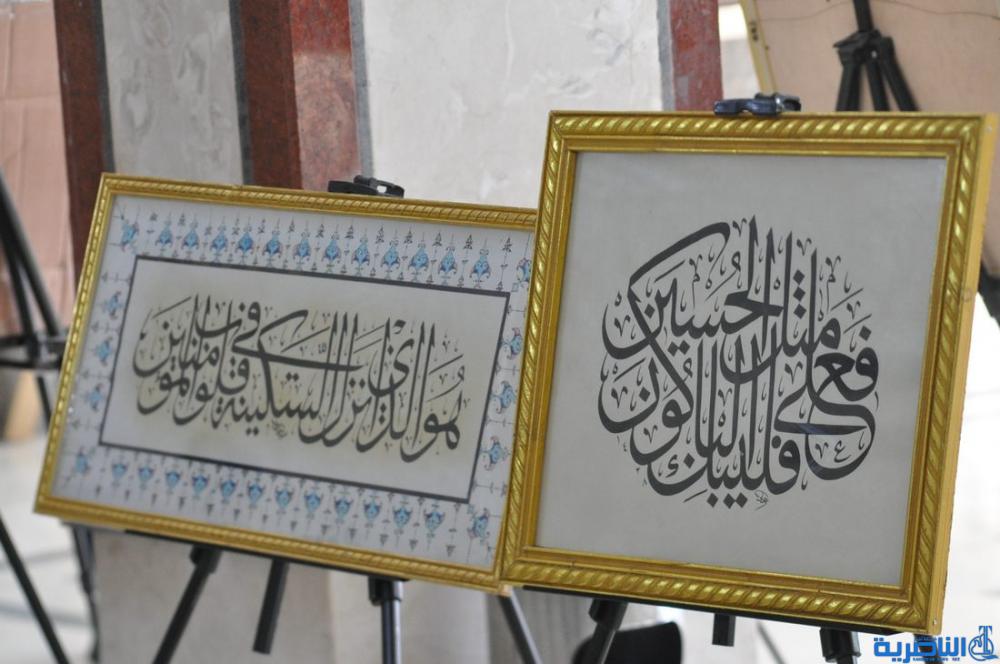 فعلى مثل الحسين فليبك الباكون
هو الذي أنزل السكينة في قلوب المؤمنين
الناصرية